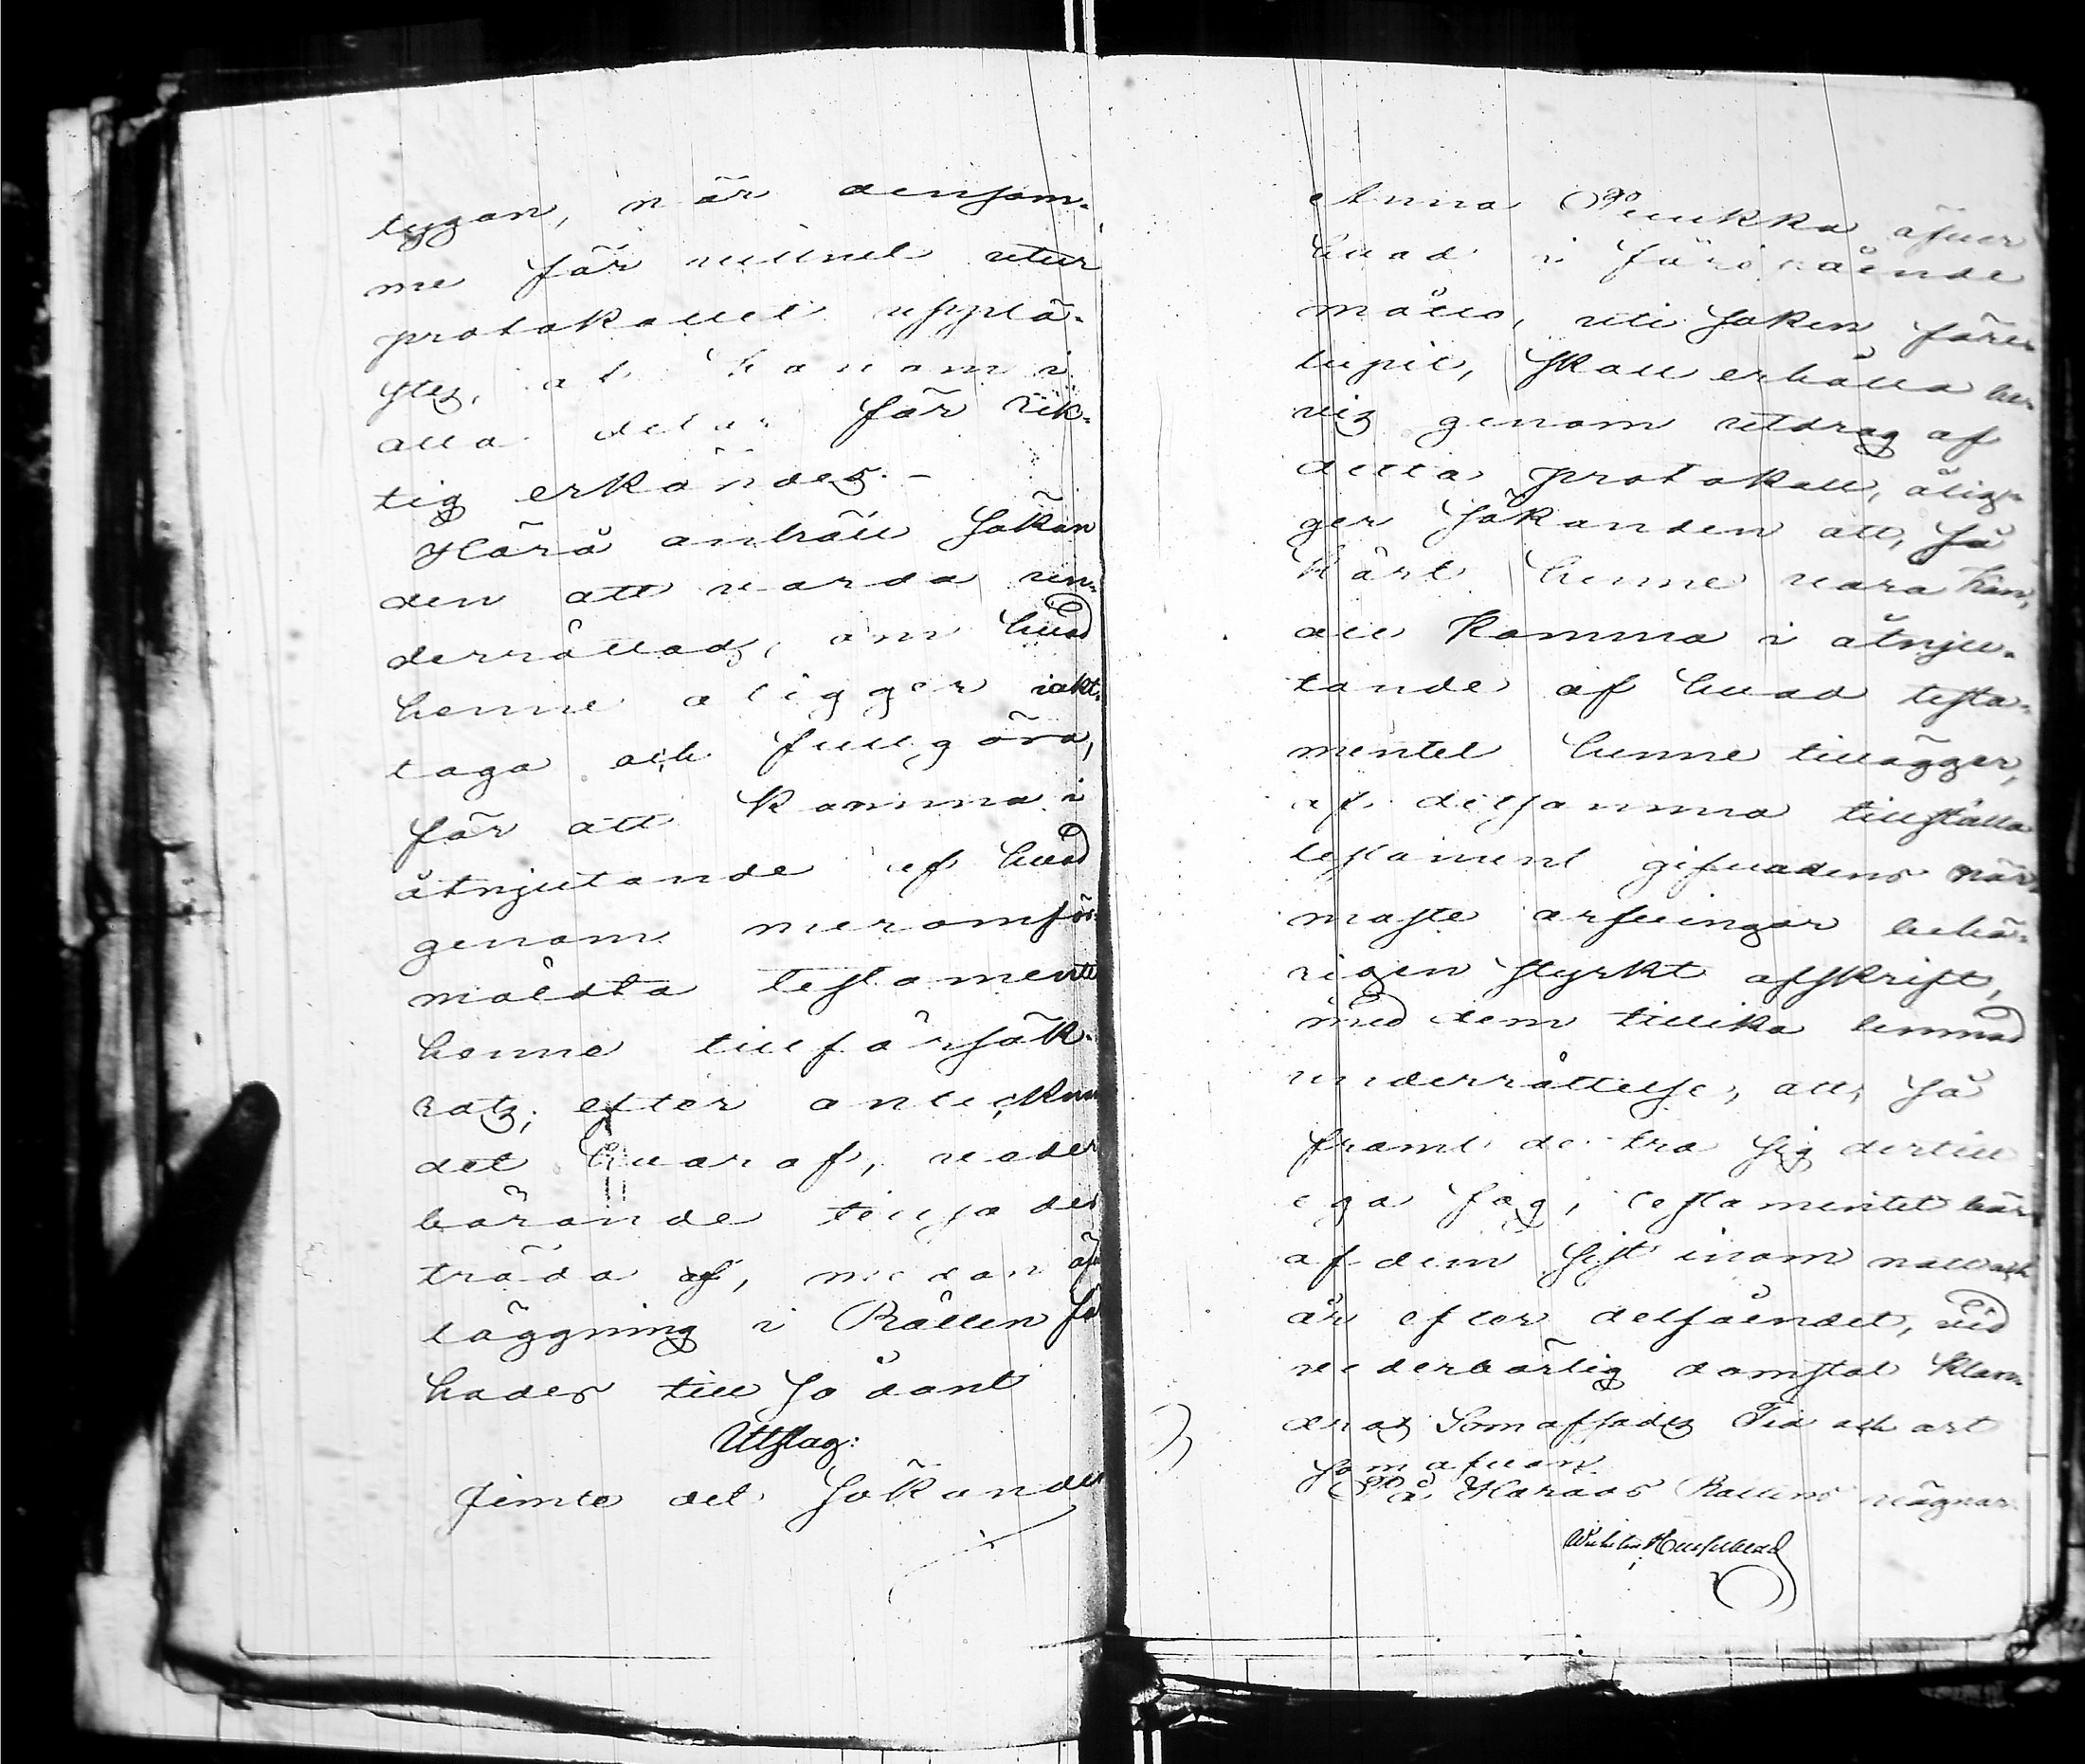 tygan, när densam-
me för vittnet utur
protokollet upplä-
stes, af honom i
alla delar för rik-
tig erkändes.-
Härå anhöll sökan
den att varda un-
derrättad, om hvad
henne åligger iakt-
taga och fullgöra,
för att komma i
åtnjutande af hvad
genom meromför-
mälda testamente
henne tillförsäk-
rats; efter anteckn
det hvaraf, veder
börande tillsades
träda af, medan öf
läggning i Rätten 
hades till sådant
Utslag:
Jemte det sökanden
Anna Puukka öfver
hvad i föreståendе
måtto, uti saken före
lupit, skall erhålla be
vis genom utdrag af
detta protokoll, ålig-
ger sökanden att, så
kärt henne vara kan,
att komma i åtnju-
tande af hvad testa-
mentet henne tillägger,
af detsamma tillställa
testament gifvadens när
maste arfvingar behö-
rigen styrkt afskrift,
med dem tillika lemnad
underrättelse, att, så
framt de tro sig dertill
ega fog, testamentet bör
af dem sist inom natt och
år efter delfåendet, vid
vederbörlig domstol klan-
dras Som afsades Tid och ort
som ofvan.
På Härads Rättens vägnar: